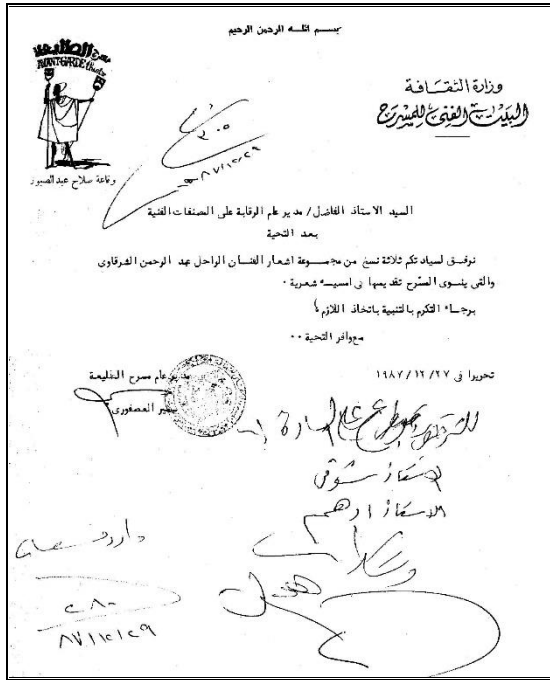 بسم اللـه الرحمن الرحيم
مسرح الطليعة
AVANT-GARDE Theatre
وقاعة صلاح عبدالصبور
وزارة الثقافة
البيت الفنى للمسرح
٣٠٥
٨٧/١٢/٢٩
السيد الاستاذ الفاضل / مدير عام الرقابة على المصنفات الفنية
بعد التحية
نرفق لسيادتكم ثلاثة نسخ من مجموعة اشعار الفنان الراحل عبد الرحمن الشرقاوى
والتى ينوى المسرح تقديمها فى امسية شعرية ٠
برجاء التكرم بالتنبية باتخاذ اللازم ،
مع وافر التحية ٠٠
تحريرا فى ٢٧ / ١٢ / ١٩٨٧
مدير عام مسرح الطليعة
سمير العصفورى
الاستاذ شوقى
الاستاذ ادهم
وارد
٢٨٠
٨٧/١٢/٢٩